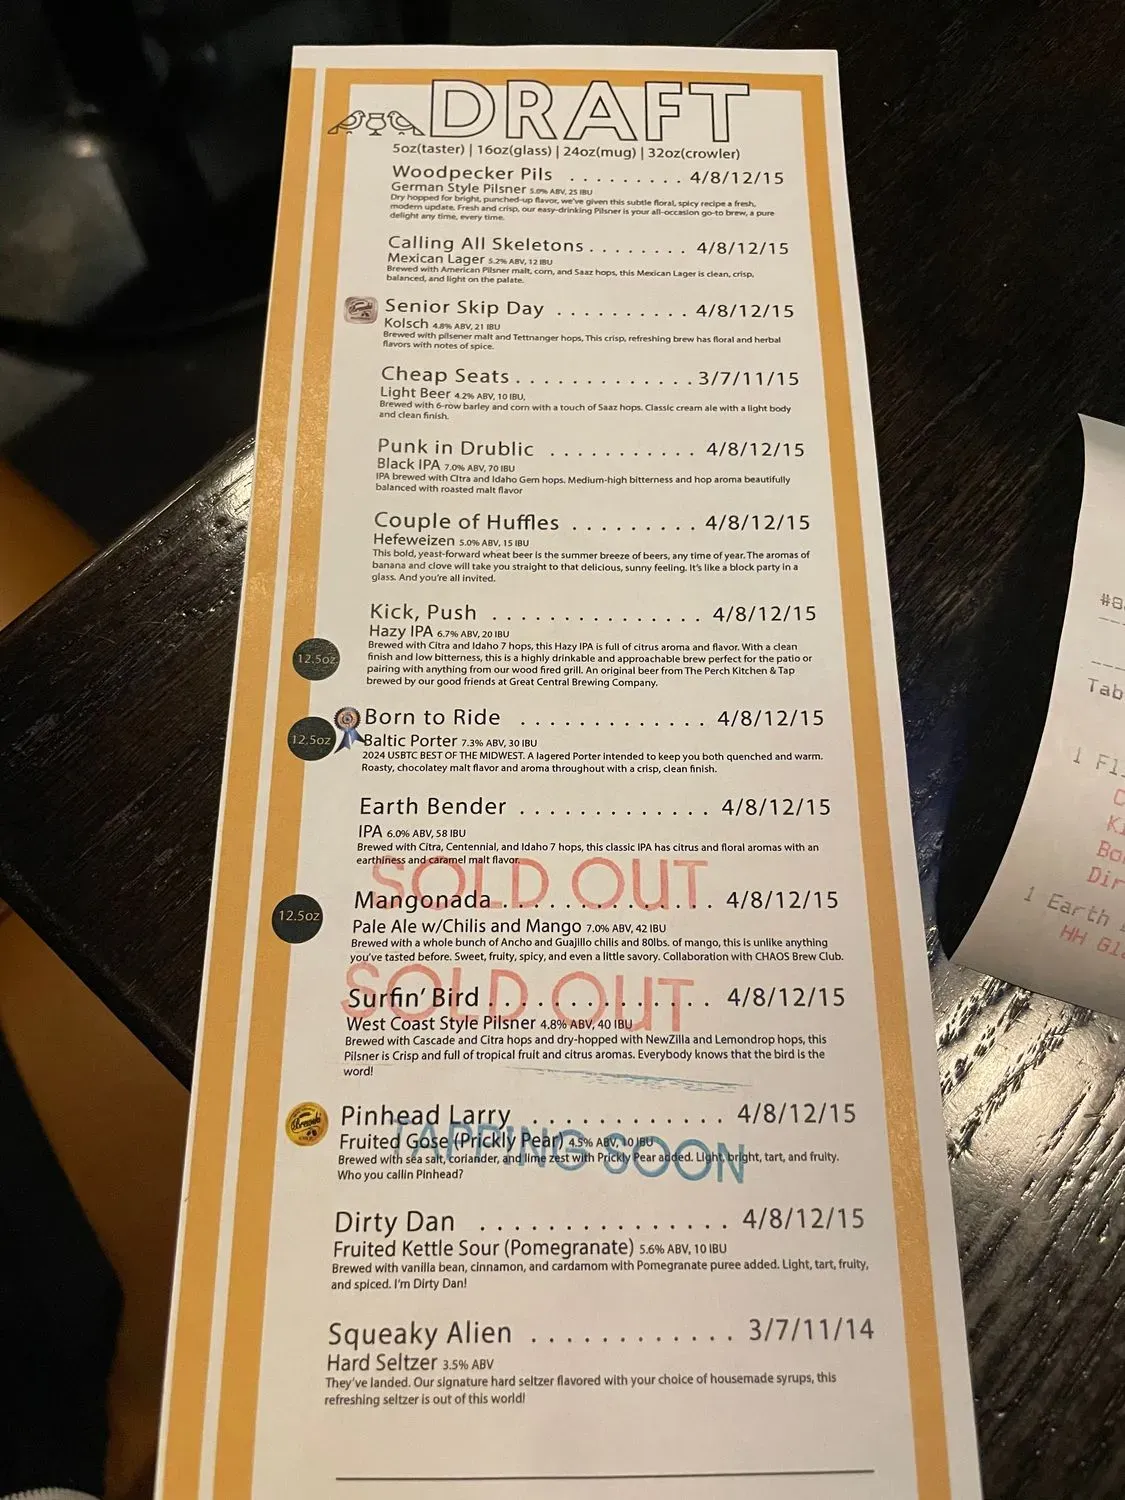 DRAFT
5oz(taster) | 16oz(glass) | 24oz(mug) | 32oz(crowler)
Woodpecker Pils . . . . . . . . . 4/8/12/15
German Style Pilsner 5.0% ABV, 25 IBU
Dry hopped for bright, punched-up flavor, we've given this subtle floral, spicy recipe a fresh,
modern update. Fresh and crisp, our easy-drinking Pilsner is your all-occasion go-to brew, a pure
delight any time, every time.
Calling All Skeletons . . . . . . . . 4/8/12/15
Mexican Lager 5.2% ABV, 12 IBU
Brewed with American Pilsner malt, corn, and Saaz hops, this Mexican Lager is clean, crisp,
balanced, and light on the palate.
Senior Skip Day . . . . . . . . . . 4/8/12/15
Kolsch 4.8% ABV, 21 IBU
Brewed with pilsener malt and Tettnanger hops, This crisp, refreshing brew has floral and herbal
flavors with notes of spice.
Cheap Seats . . . . . . . . . . . . . 3/7/11/15
Light Beer 4.2% ABV, 10 IBU,
Brewed with 6-row barley and corn with a touch of Saaz hops. Classic cream ale with a light body
and clean finish.
Punk in Drublic . . . . . . . . . . . 4/8/12/15
Black IPA 7.0% ABV, 70 IBU
IPA brewed with Citra and Idaho Gem hops. Medium-high bitterness and hop aroma beautifully
balanced with roasted malt flavor
Couple of Huffles . . . . . . . . . 4/8/12/15
Hefeweizen 5.0% ABV, 15 IBU
This bold, yeast-forward wheat beer is the summer breeze of beers, any time of year. The aromas of
banana and clove will take you straight to that delicious, sunny feeling. It's like a block party in a
glass. And you're all invited.
Kick, Push . . . . . . . . . . . . . . . 4/8/12/15
Hazy IPA 6.7% ABV, 20 IBU
Brewed with Citra and Idaho 7 hops, this Hazy IPA is full of citrus aroma and flavor. With a clean
12.5oz
finish and low bitterness, this is a highly drinkable and approachable brew perfect for the patio or
pairing with anything from our wood fired grill. An original beer from The Perch Kitchen & Tap
brewed by our good friends at Great Central Brewing Company.
Born to Ride . . . . . . . . . . . . . 4/8/12/15
12.5oz
Baltic Porter 7.3% ABV, 30 IBU
2024 USBTC BEST OF THE MIDWEST. A lagered Porter intended to keep you both quenched and warm.
Roasty, chocolatey malt flavor and aroma throughout with a crisp, clean finish.
Earth Bender . . . . . . . . . . . . . 4/8/12/15
IPA 6.0% ABV, 58 IBU
Brewed with Citra, Centennial, and Idaho 7 hops, this classic IPA has citrus and floral aromas with an
earthiness and caramel malt flavor.
SOLD OUT
Mangonada . . . . . . . . . . . . . . 4/8/12/15
12.5oz
Pale Ale w/Chilis and Mango 7.0% ABV, 42 IBU
Brewed with a whole bunch of Ancho and Guajillo chilis and 80lbs. of mango, this is unlike anything
you've tasted before. Sweet, fruity, spicy, and even a little savory. Collaboration with CHAOS Brew Club.
SOLD OUT
Surfin' Bird . . . . . . . . . . . . . . 4/8/12/15
West Coast Style Pilsner 4.8% ABV, 40 IBU
Brewed with Cascade and Citra hops and dry-hopped with NewZilla and Lemondrop hops, this
Pilsner is Crisp and full of tropical fruit and citrus aromas. Everybody knows that the bird is the
word!
Pinhead Larry . . . . . . . . . . . . 4/8/12/15
Fruited Gose (Prickly Pear) 4.5% ABV, 10 IBU
TAPPING SOON
Brewed with sea salt, coriander, and lime zest with Prickly Pear added. Light, bright, tart, and fruity.
Who you callin Pinhead?
Dirty Dan . . . . . . . . . . . . . . . 4/8/12/15
Fruited Kettle Sour (Pomegranate) 5.6% ABV, 10 IBU
Brewed with vanilla bean, cinnamon, and cardamom with Pomegranate puree added. Light, tart, fruity,
and spiced. I'm Dirty Dan!
Squeaky Alien . . . . . . . . . . . . 3/7/11/14
Hard Seltzer 3.5% ABV
They've landed. Our signature hard seltzer flavored with your choice of housemade syrups, this
refreshing seltzer is out of this world!
Tab
1 Fl
Bo
Dir
1 Earth
HH Gl